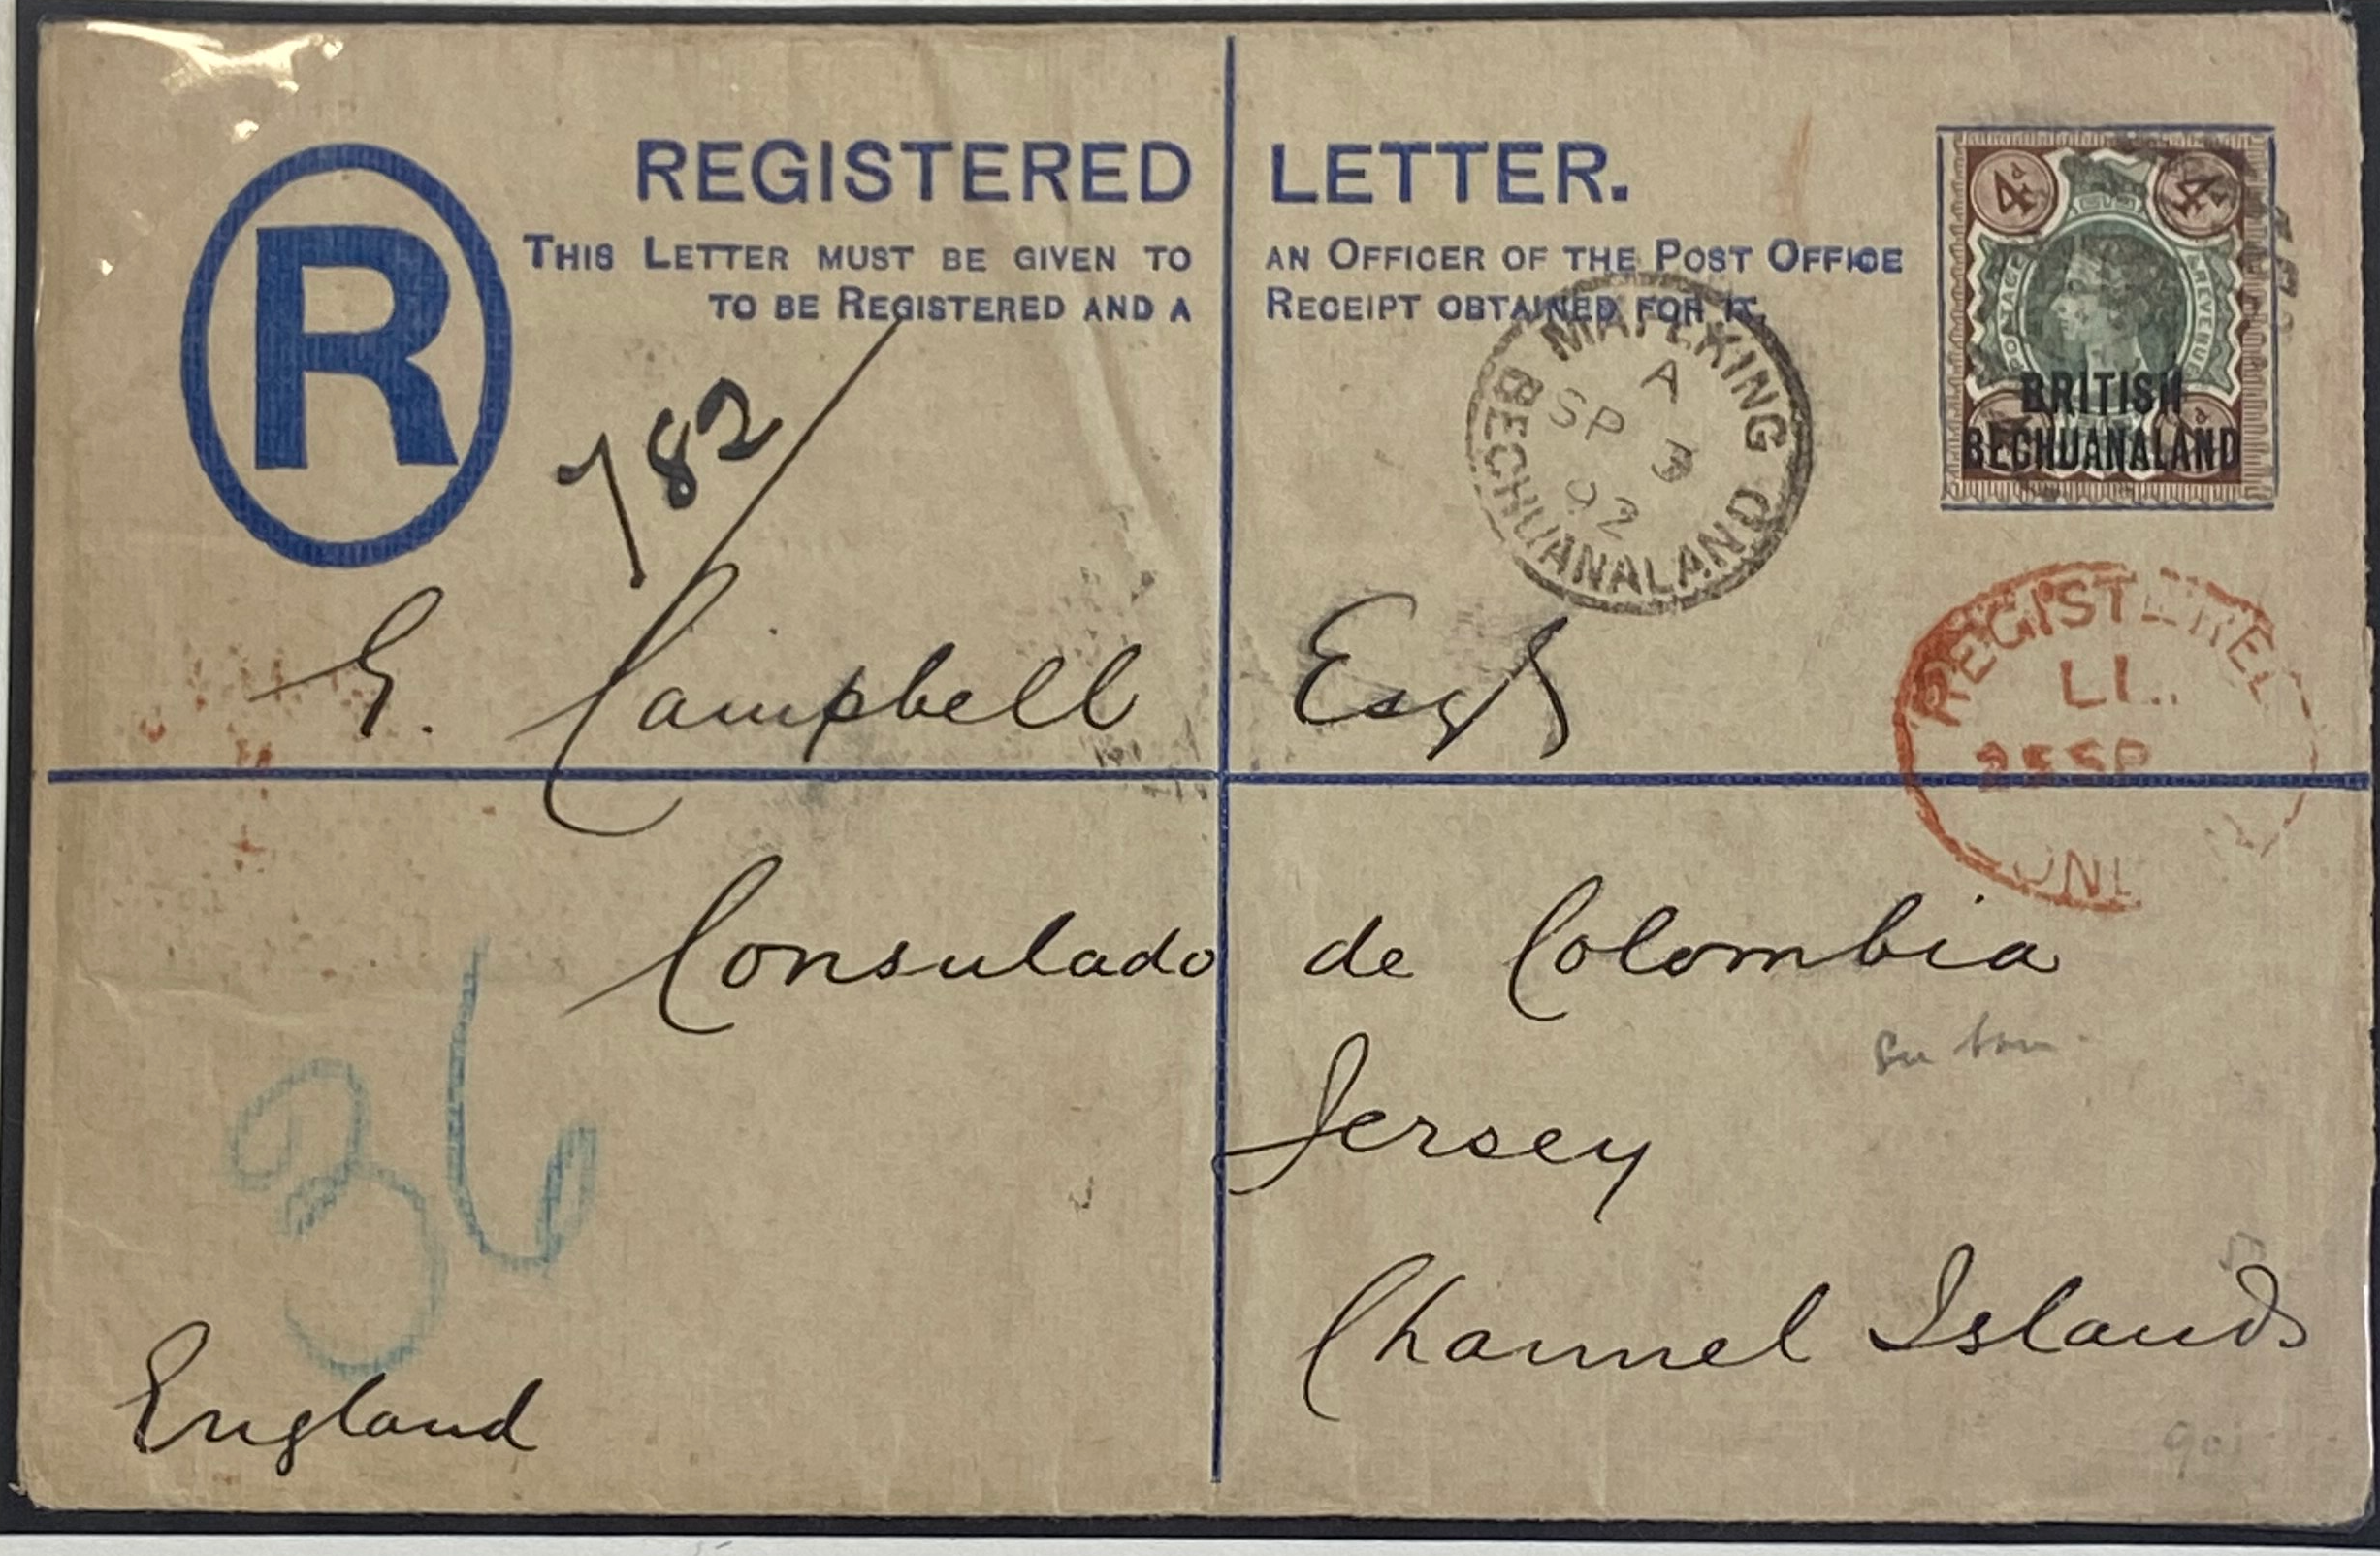 REGISTERED LETTER.
THIS LETTER MUST BE GIVEN TO AN OFFICER OF THE POST OFFICE
TO BE REGISTERED AND A RECEIPT OBTAINED FOR IT.
R
782
4d 4d
POSTAGE REVENUE
BRITISH
BECHUANALAND
MAFEKING
A
SP 3
92
BECHUANALAND
REGISTERED
25SP
E. Campbell Esqr
Consulado de Colombia
Jersey
Channel Islands
England
36